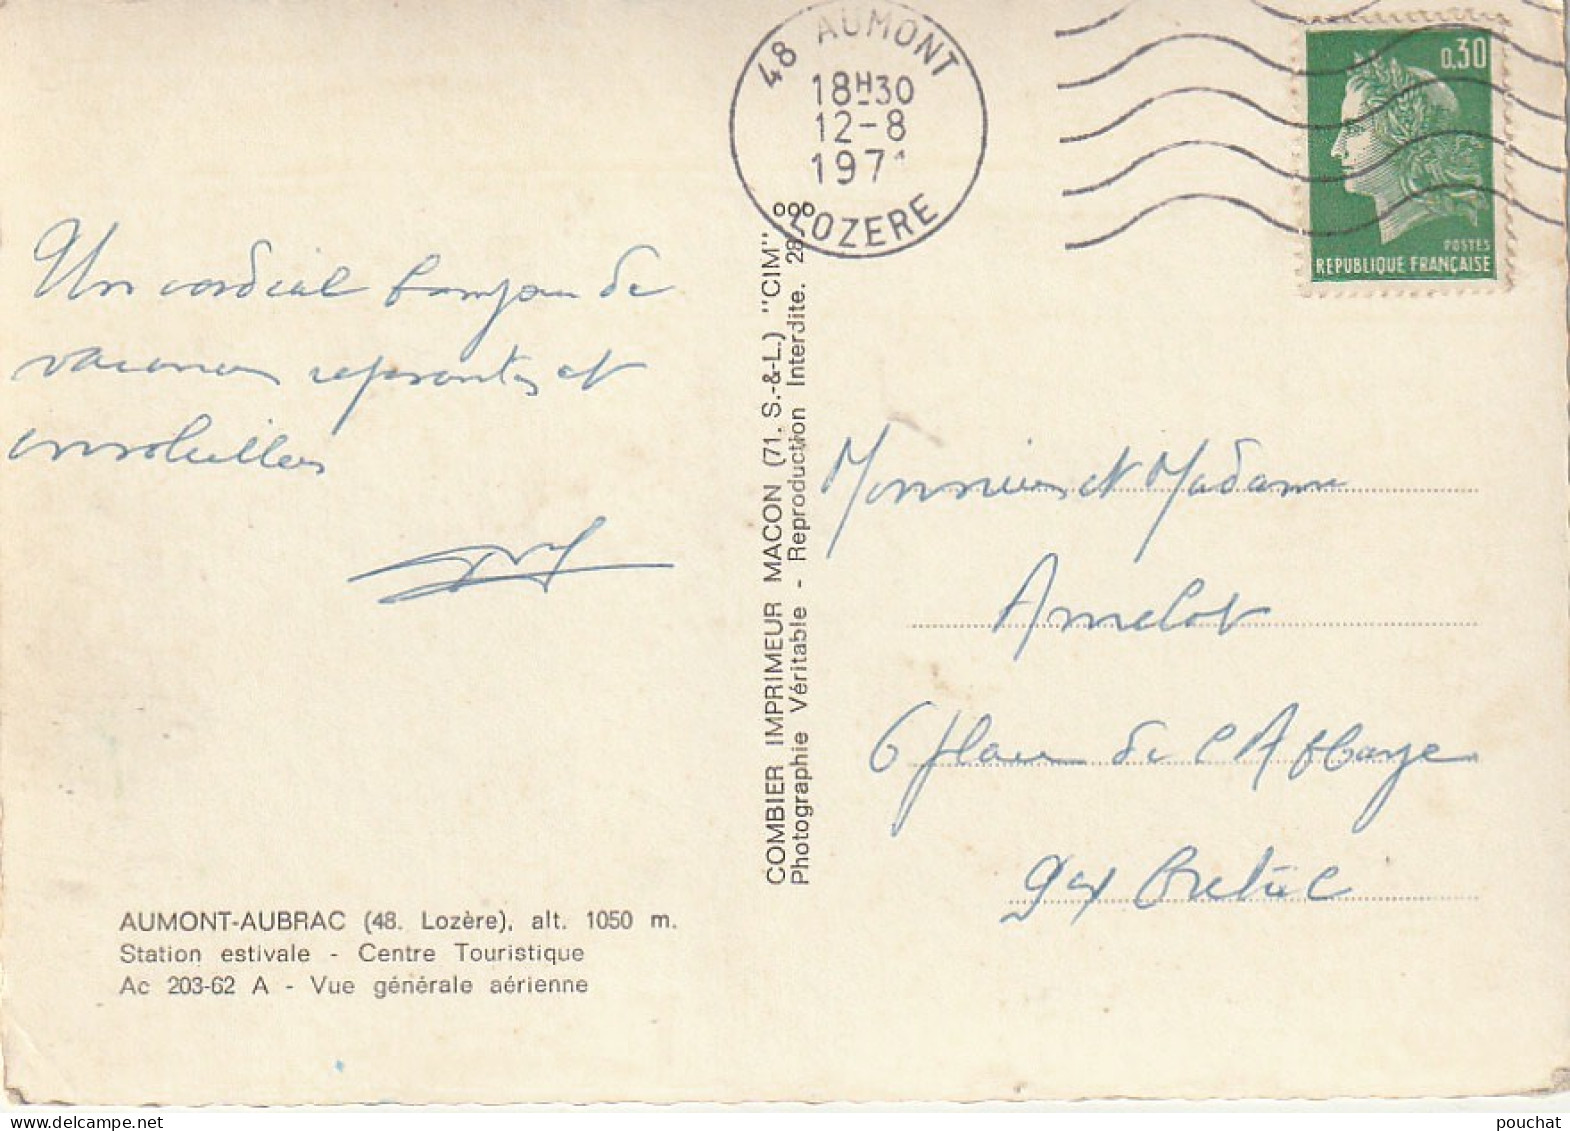 48 AUMONT
18H30
12-8
197
LOZERE
0,30
POSTES
REPUBLIQUE FRANÇAISE
Un cordial bonjour de
vacances reposantes et
ensoleillées
COMBIER IMPRIMEUR MACON (71. S.-&-L.) "CIM"
Photographie Véritable - Reproduction Interdite. 28
Monsieur et Madame
Amelot
6 place de l'Abbaye
94 Créteil
AUMONT-AUBRAC (48. Lozère), alt. 1050 m.
Station estivale - Centre Touristique
Ac 203-62 A - Vue générale aérienne
pouchat